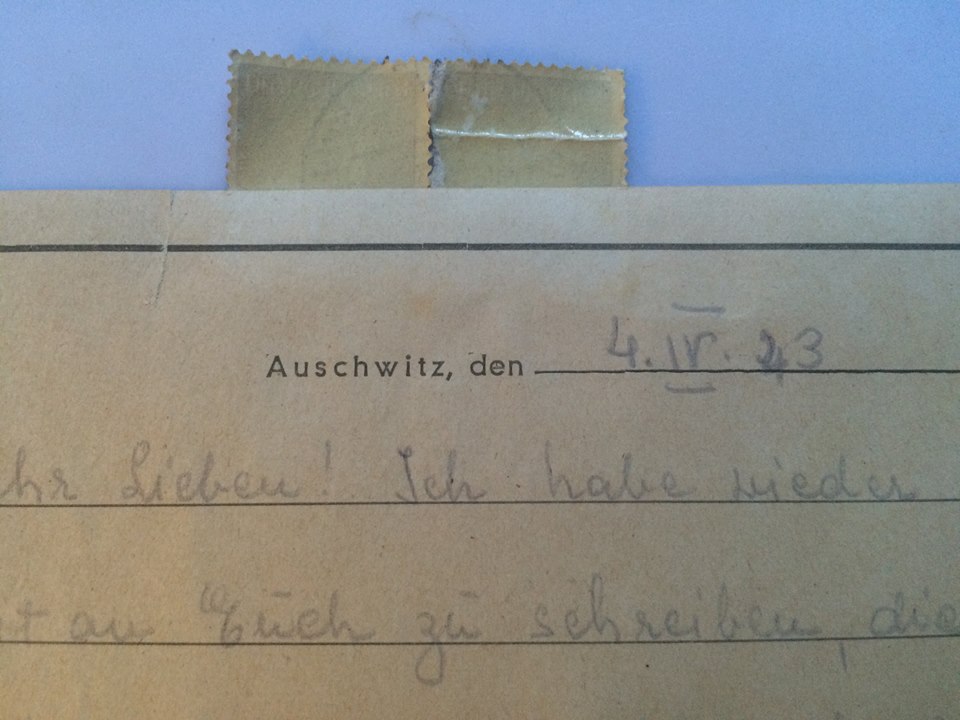 Auschwitz, den 4. IV. 43
hr Lieben! Ich habe wieder
it an Euch zu schreiben, die